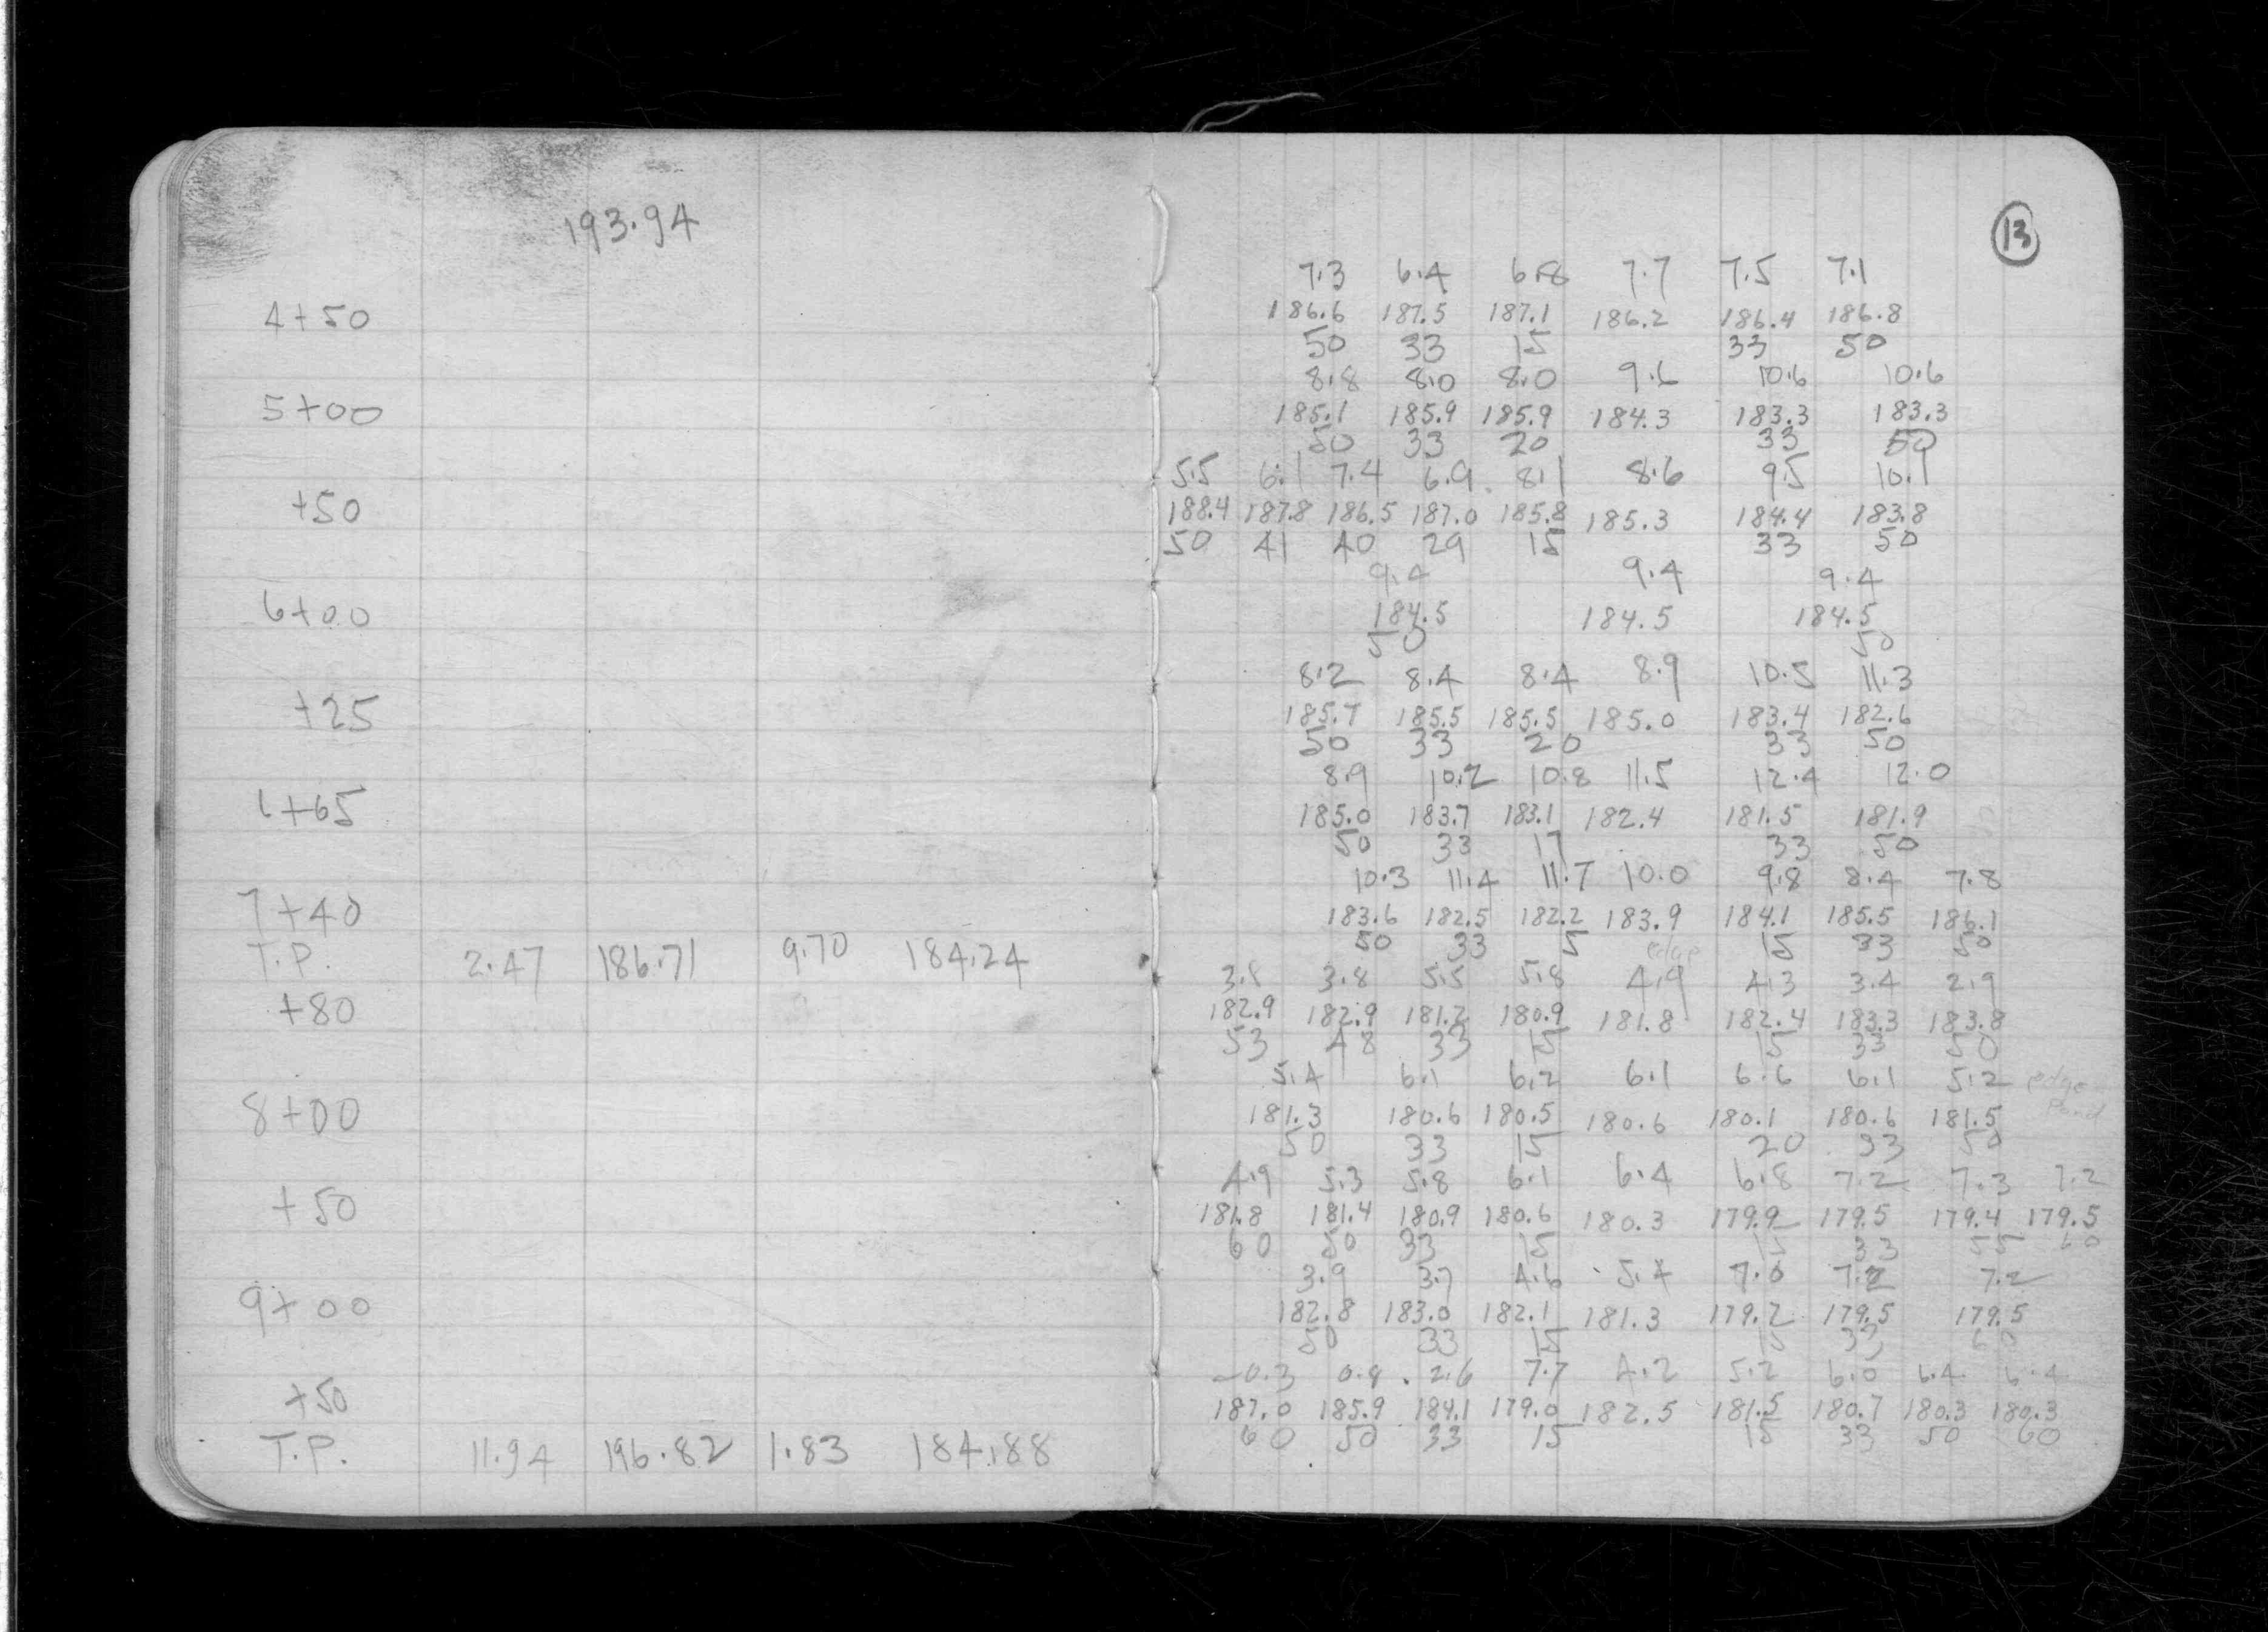 193.94
13
7.3 6.4 6.8 7.7 7.5 7.1
4+50 186.6 187.5 187.1 186.2 186.4 186.8
50 33 15 33 50
8.8 8.0 8.0 9.6 10.6 10.6
5+00 185.1 185.9 185.9 184.3 183.3 183.3
50 33 20 33 50
5.5 6.1 7.4 6.9 8.1 8.6 9.5 10.1
+50 188.4 187.8 186.5 187.0 185.8 185.3 184.4 183.8
50 41 40 29 15 33 50
9.4 9.4 9.4
6+00 184.5 184.5 184.5
50 50
8.2 8.4 8.4 8.9 10.5 11.3
+25 185.7 185.5 185.5 185.0 183.4 182.6
50 33 20 33 50
8.9 10.2 10.8 11.5 12.4 12.0
6+65 185.0 183.7 183.1 182.4 181.5 181.9
50 33 17 33 50
10.3 11.4 11.7 10.0 9.8 8.4 7.8
7+40 183.6 182.5 182.2 183.9 184.1 185.5 186.1
50 33 15 edge 15 33 50
T.P. 2.47 186.71 9.70 184.24
3.8 3.8 5.5 5.8 4.9 4.3 3.4 2.9
+80 182.9 182.9 181.2 180.9 181.8 182.4 183.3 183.8
53 48 33 15 15 33 50
5.4 6.1 6.2 6.1 6.6 6.1 5.2 edge
8+00 181.3 180.6 180.5 180.6 180.1 180.6 181.5 Pond
50 33 15 20 33 50
4.9 5.3 5.8 6.1 6.4 6.8 7.2 7.3 7.2
+50 181.8 181.4 180.9 180.6 180.3 179.9 179.5 179.4 179.5
60 50 33 15 15 33 55 60
3.9 3.7 4.6 5.4 7.0 7.2 7.2
9+00 182.8 183.0 182.1 181.3 179.7 179.5 179.5
50 33 15 15 33 60
-0.3 0.8 2.6 7.7 4.2 5.2 6.0 6.4 6.4
+50 187.0 185.9 184.1 179.0 182.5 181.5 180.7 180.3 180.3
60 50 33 15 15 33 50 60
T.P. 11.94 196.82 1.83 184.88